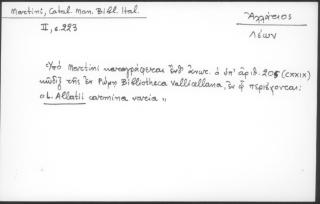 Martini, Catal. Man. Bibl. Ital.
II, σ. 223
Ἀλλάτιος
Λέων
Ὑπὸ Martini καταγράφεται ἐνθ' ἀνωτ. ὁ ὑπ' ἀριθ. 205 (CXXIX)
κῶδιξ τῆς ἐν Ρώμῃ Bibliotheca Vallicellana, ἐν ᾧ περιέχονται:
«L. Allatii carmina varia»